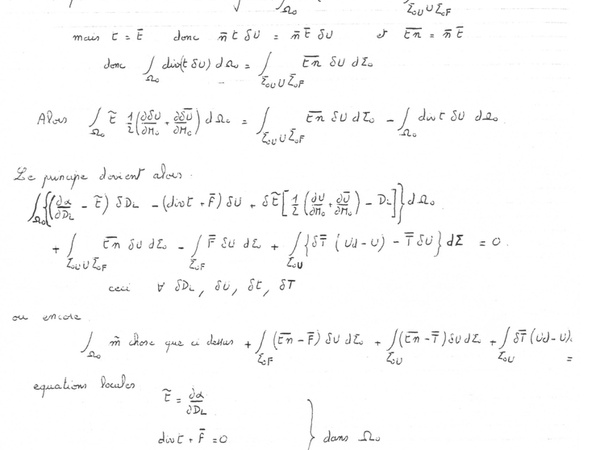 mais t = t̄ donc n̄ t δU = n̄ t̄ δU et \overline{tn} = n̄ t̄
donc ∫_{Ω₀} div(t δU) dΩ₀ = ∫_{Σ₀U ∪ Σ₀F} \overline{tn} δU dΣ₀
Alors ∫_{Ω₀} t̃ 1/2 (∂δU/∂M₀ + \overline{∂δU/∂M₀}) dΩ₀ = ∫_{Σ₀U ∪ Σ₀F} \overline{tn} δU dΣ₀ − ∫_{Ω₀} div t δU dΩ₀
Le principe devient alors
∫_{Ω₀} {(∂α/∂D_L − t̃) δD_L − (div t + F̄) δU + δt̃ [1/2 (∂U/∂M₀ + \overline{∂U/∂M₀}) − D_L]} dΩ₀
+ ∫_{Σ₀U ∪ Σ₀F} \overline{tn} δU dΣ₀ − ∫_{Σ₀F} F̄ δU dΣ₀ + ∫_{Σ₀U} {δT̄ (Ud − U) − T̄ δU} dΣ = 0
ceci ∀ δD_L, δU, δt, δT
ou encore
∫_{Ω₀} m̂ chose que ci dessus + ∫_{Σ₀F} (\overline{tn} − F̄) δU dΣ₀ + ∫_{Σ₀U} (\overline{tn} − T̄) δU dΣ₀ + ∫_{Σ₀U} δT̄ (Ud − U)
=
equations locales
t̃ = ∂α/∂D_L
div t + F̄ = 0 } dans Ω₀